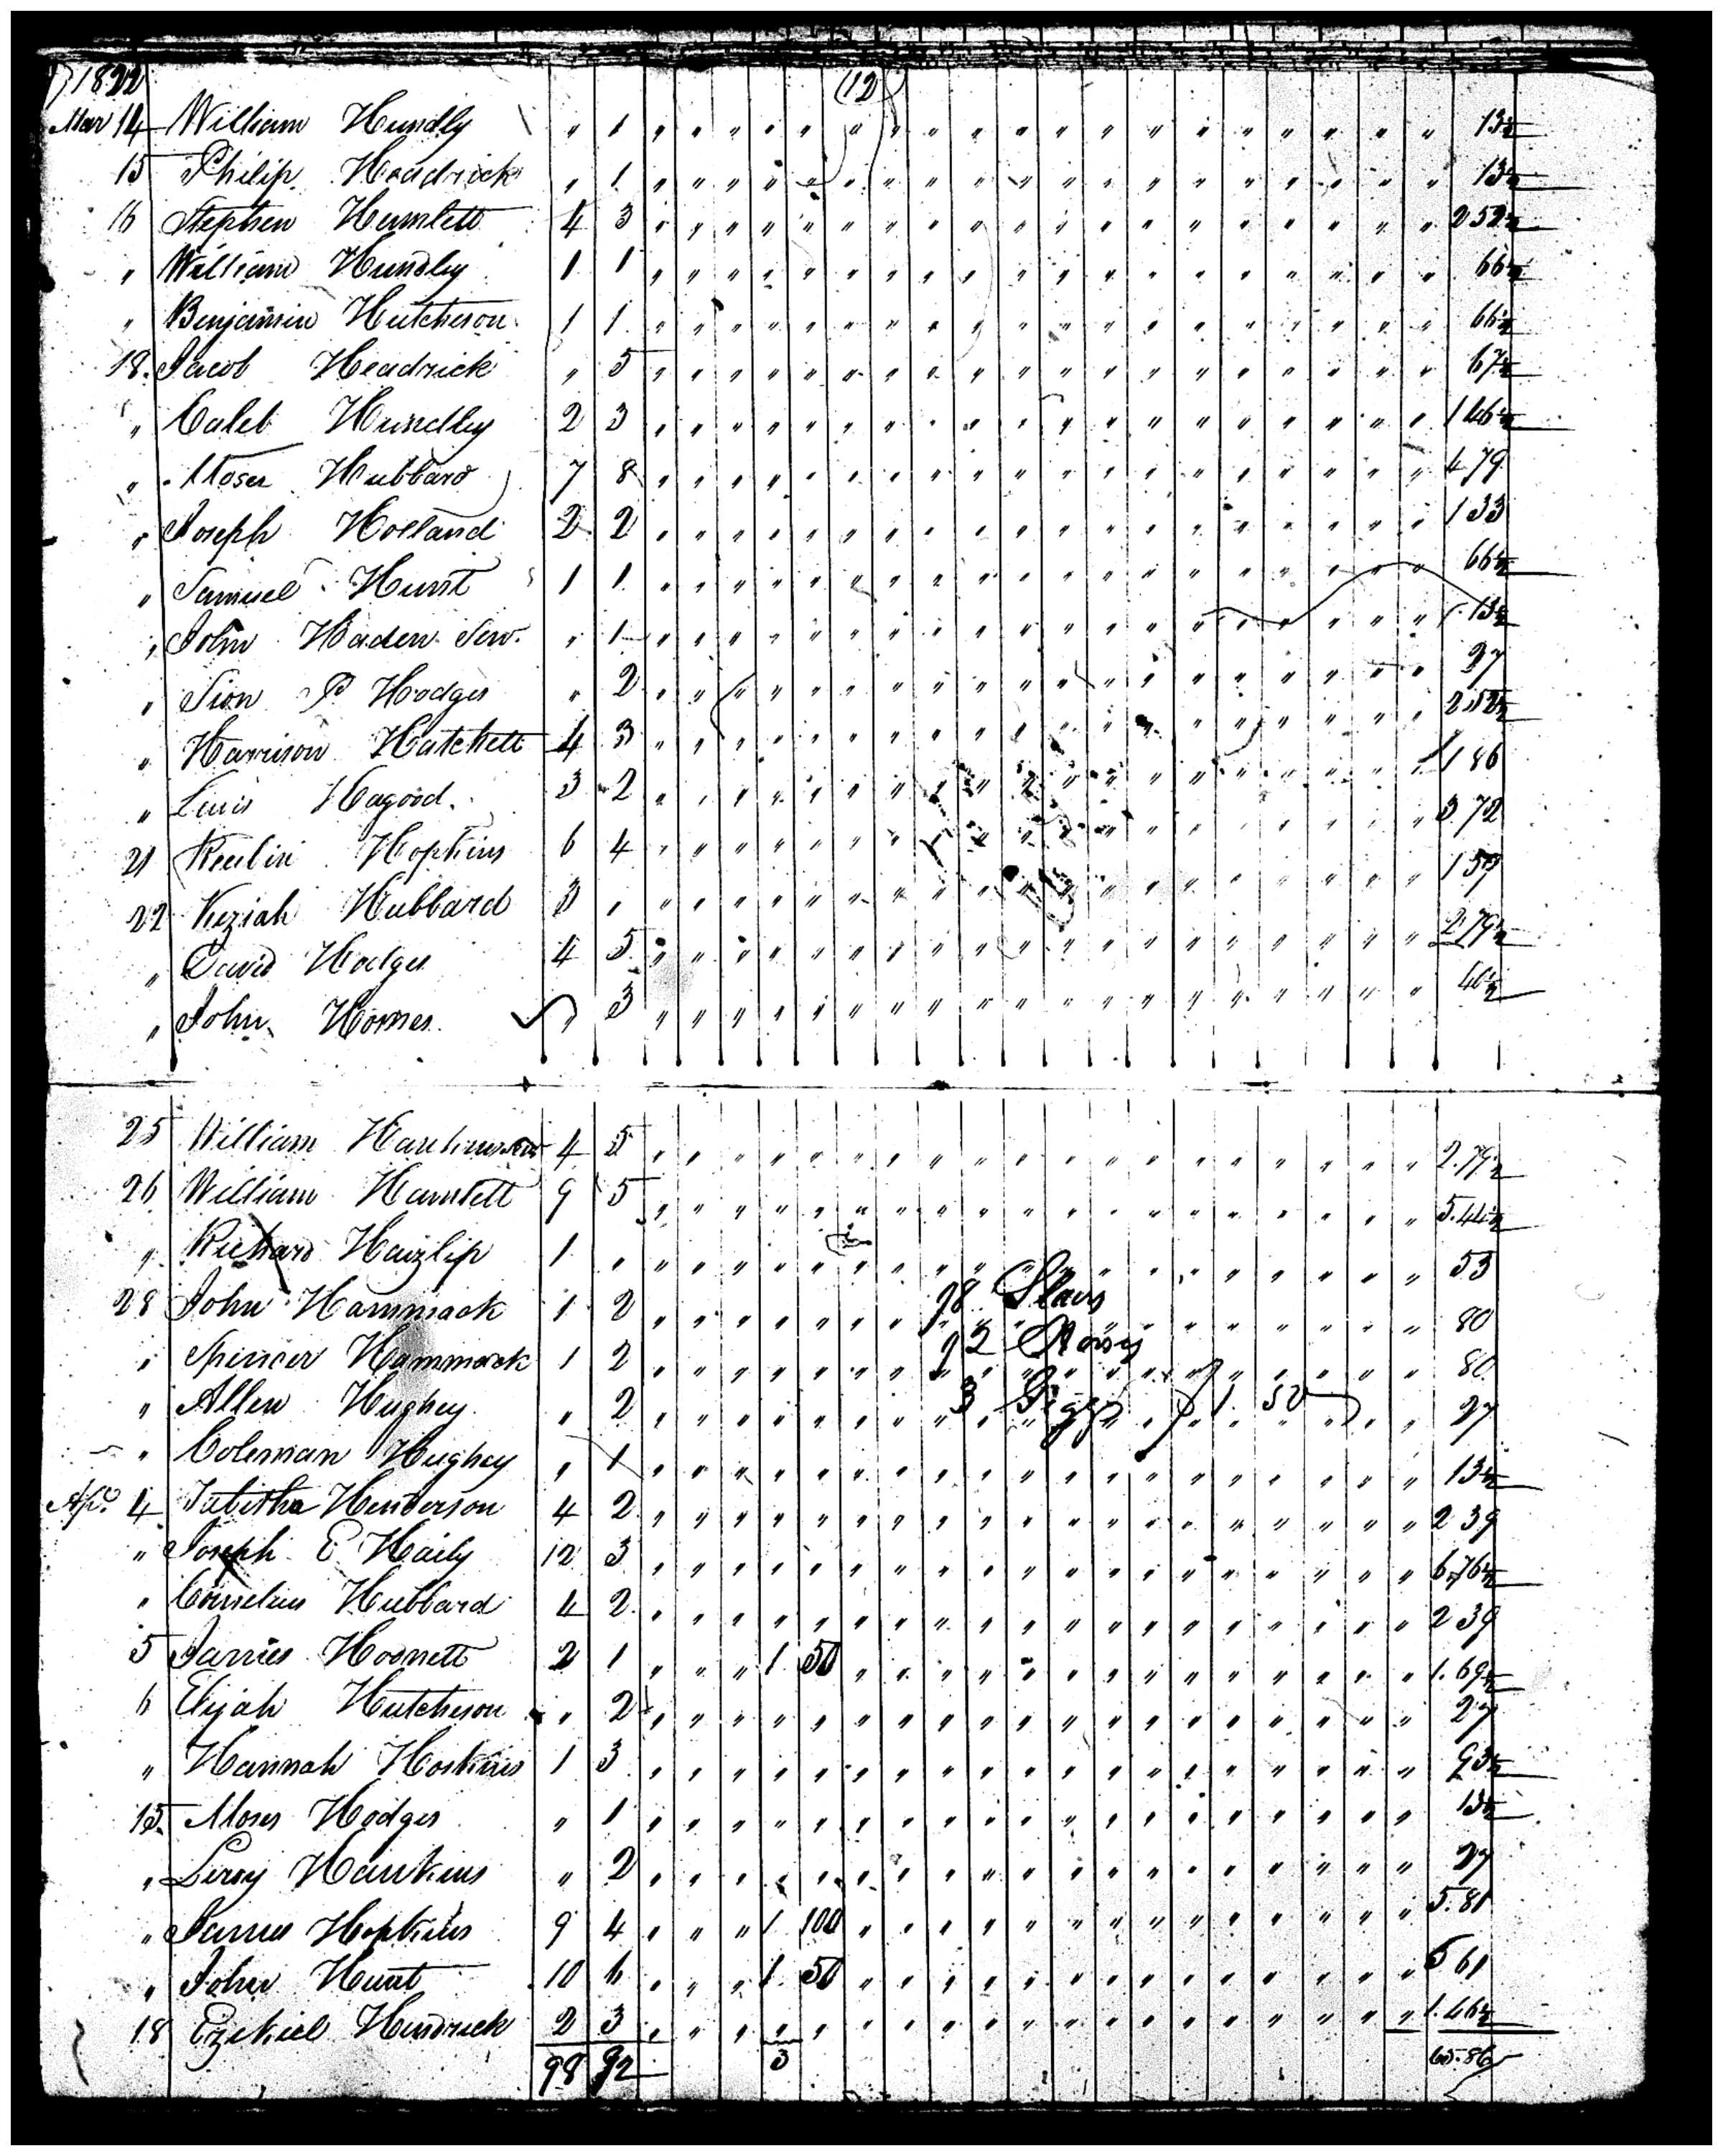 1822 (12)
Mar 14 William Hundly " 1 " " " " " " " " " " " " " " " " " " " " 13½
15 Philip Headrick " 1 " " " " " " " " " " " " " " " " " " " " 13½
16 Stephen Hamlett 4 3 " " " " " " " " " " " " " " " " " " " " 2 52½
" William Hundley 1 1 " " " " " " " " " " " " " " " " " " " " 66½
" Benjamin Hutcheson 1 1 " " " " " " " " " " " " " " " " " " " " 66½
18. Jacob Headrick " 5 " " " " " " " " " " " " " " " " " " " " 67½
" Caleb Hundley 2 3 " " " " " " " " " " " " " " " " " " " " 1 46½
" Moses Hubbard 7 8 " " " " " " " " " " " " " " " " " " " " 4 79
" Joseph Holland 2 2 " " " " " " " " " " " " " " " " " " " " 1 33
" Samuel Hunt 1 1 " " " " " " " " " " " " " " " " " " " " 66½
" John Haden Sen. " 1 " " " " " " " " " " " " " " " " " " " " 13½
" Sion P Hodges " 2 " " " " " " " " " " " " " " " " " " " " 27
" Harrison Hatchett 4 3 " " " " " " " " " " " " " " " " " " " " 2.52½
" Luis Hagood. 3 2 " " " " " " " " " " " " " " " " " " " " 1 86
21 Reubin Hopkins 6 4 " " " " " " " " " " " " " " " " " " " " 3 72
22 Keziah Hubbard 3 " " " " " " " " " " " " " " " " " " " " " 1 59
" David Hodges 4 5 " " " " " " " " " " " " " " " " " " " " 2.79½
" John Homes " 3 " " " " " " " " " " " " " " " " " " " " 40½
25 William 4 5 " " " " " " " " " " " " " " " " " " " " 2.79½
26 William Hamlett 9 5 " " " " " " " " " " " " " " " " " " " " 5.44½
" Richard Haizlip 1 " " " " " " " " " " " " " " " " " " " " " 53
28 John Hammack 1 2 " " " " " " " " " " " " " " " " " " " " 80
98 Slavs
" Spencer Hammack 1 2 " " " " " " " " " " " " " " " " " " " " 80
92 Horsy
" Allen Hughey " 2 " " " " " " " " " " " " " " " " " " " " 27
3 Giggs $1 50
" Coleman Hughey " 1 " " " " " " " " " " " " " " " " " " " " 13½
Apl. 4 Tabitha Henderson 4 2 " " " " " " " " " " " " " " " " " " " " 2 39
" Joseph E Haily 12 3 " " " " " " " " " " " " " " " " " " " " 6.76½
" Cornelius Hubbard 4 2 " " " " " " " " " " " " " " " " " " " " 2 39
5 James Hodnett 2 1 " " " 1 50 " " " " " " " " " " " " " " " 1.69½
6 Elijah Hutcheson " 2 " " " " " " " " " " " " " " " " " " " " 27
" Hannah Hoskins 1 3 " " " " " " " " " " " " " " " " " " " " 93½
15. Moses Hodges " 1 " " " " " " " " " " " " " " " " " " " " 13½
" Leroy Hawkins " 2 " " " " " " " " " " " " " " " " " " " " 27
" James Hopkins 9 4 " " " 1 100 " " " " " " " " " " " " " " " 5.81
" John Hunt 10 6 " " " 1 50 " " " " " " " " " " " " " " " 6 61
18 Ezekiel Hendrick 2 3 " " " " " " " " " " " " " " " " " " " " 1.46½
98 92 3 65.86